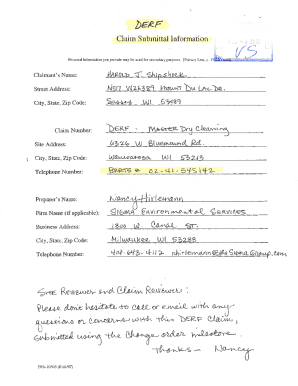 DERF
Claim Submittal Information
VS
Personal information you provide may be used for secondary purposes. [Privacy Law, s.
Claimant's Name: Harold J. Shipshock
Street Address: N57 W26389 Mount Du Lac Dr.
City, State, Zip Code: Sussex, WI 53089
Claim Number: DERF - Master Dry Cleaning
Site Address: 6326 W. Bluemound Rd.
City, State, Zip Code: Wauwatosa WI 53213
Telephone Number: BRRTS # 02-41-545142
Preparer's Name: Nancy Hirlemann
Firm Name (if applicable): Sigma Environmental Services
Business Address: 1300 W. Canal St.
City, State, Zip Code: Milwaukee WI 53233
Telephone Number: 414 643-4112 nhirlemann@thesigmagroup.com
Site Reviewer and Claim Reviewer:
Please don't hesitate to call or email with any
questions or concerns with this DERF Claim,
submitted using the Change order milestone.
Thanks - Nancy